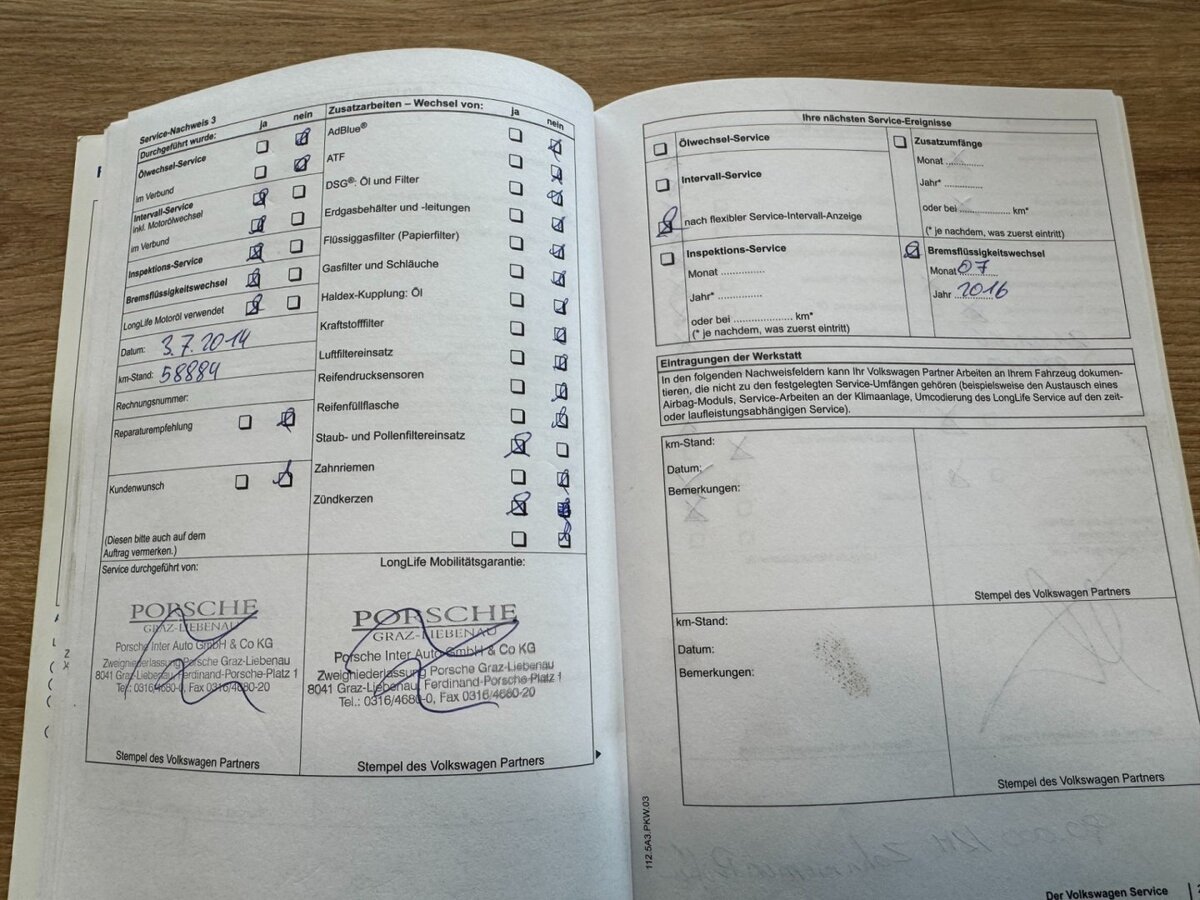 Service-Nachweis 3
ja
nein
Durchgeführt wurde:
Ölwechsel-Service
im Verbund
Intervall-Service
inkl. Motorölwechsel
im Verbund
Inspektions-Service
Bremsflüssigkeitswechsel
LongLife Motoröl verwendet
Datum: 3.7.2014
km-Stand: 58884
Rechnungsnummer:
Reparaturempfehlung
Kundenwunsch
(Diesen bitte auch auf dem
Auftrag vermerken.)
Zusatzarbeiten – Wechsel von:
ja
nein
AdBlue®
ATF
DSG®: Öl und Filter
Erdgasbehälter und -leitungen
Flüssiggasfilter (Papierfilter)
Gasfilter und Schläuche
Haldex-Kupplung: Öl
Kraftstofffilter
Luftfiltereinsatz
Reifendrucksensoren
Reifenfüllflasche
Staub- und Pollenfiltereinsatz
Zahnriemen
Zündkerzen
Service durchgeführt von:
PORSCHE
GRAZ-LIEBENAU
Porsche Inter Auto GmbH & Co KG
Zweigniederlassung Porsche Graz-Liebenau
8041 Graz-Liebenau, Ferdinand-Porsche-Platz 1
Tel.: 0316/4680-0, Fax 0316/4680-20
Stempel des Volkswagen Partners
LongLife Mobilitätsgarantie:
PORSCHE
GRAZ-LIEBENAU
Porsche Inter Auto GmbH & Co KG
Zweigniederlassung Porsche Graz-Liebenau
8041 Graz-Liebenau, Ferdinand-Porsche-Platz 1
Tel.: 0316/4680-0, Fax 0316/4680-20
Stempel des Volkswagen Partners
Ihre nächsten Service-Ereignisse
Ölwechsel-Service
Intervall-Service
nach flexibler Service-Intervall-Anzeige
Inspektions-Service
Monat .............
Jahr* .............
oder bei .................. km*
(* je nachdem, was zuerst eintritt)
Zusatzumfänge
Monat ...........
Jahr* ...........
oder bei ................. km*
(* je nachdem, was zuerst eintritt)
Bremsflüssigkeitswechsel
Monat 07
Jahr 2016
Eintragungen der Werkstatt
In den folgenden Nachweisfeldern kann Ihr Volkswagen Partner Arbeiten an Ihrem Fahrzeug dokumen-
tieren, die nicht zu den festgelegten Service-Umfängen gehören (beispielsweise den Austausch eines
Airbag-Moduls, Service-Arbeiten an der Klimaanlage, Umcodierung des LongLife Service auf den zeit-
oder laufleistungsabhängigen Service).
km-Stand:
Datum:
Bemerkungen:
Stempel des Volkswagen Partners
km-Stand:
Datum:
Bemerkungen:
Stempel des Volkswagen Partners
112.5A3.PKW.03
Der Volkswagen Service